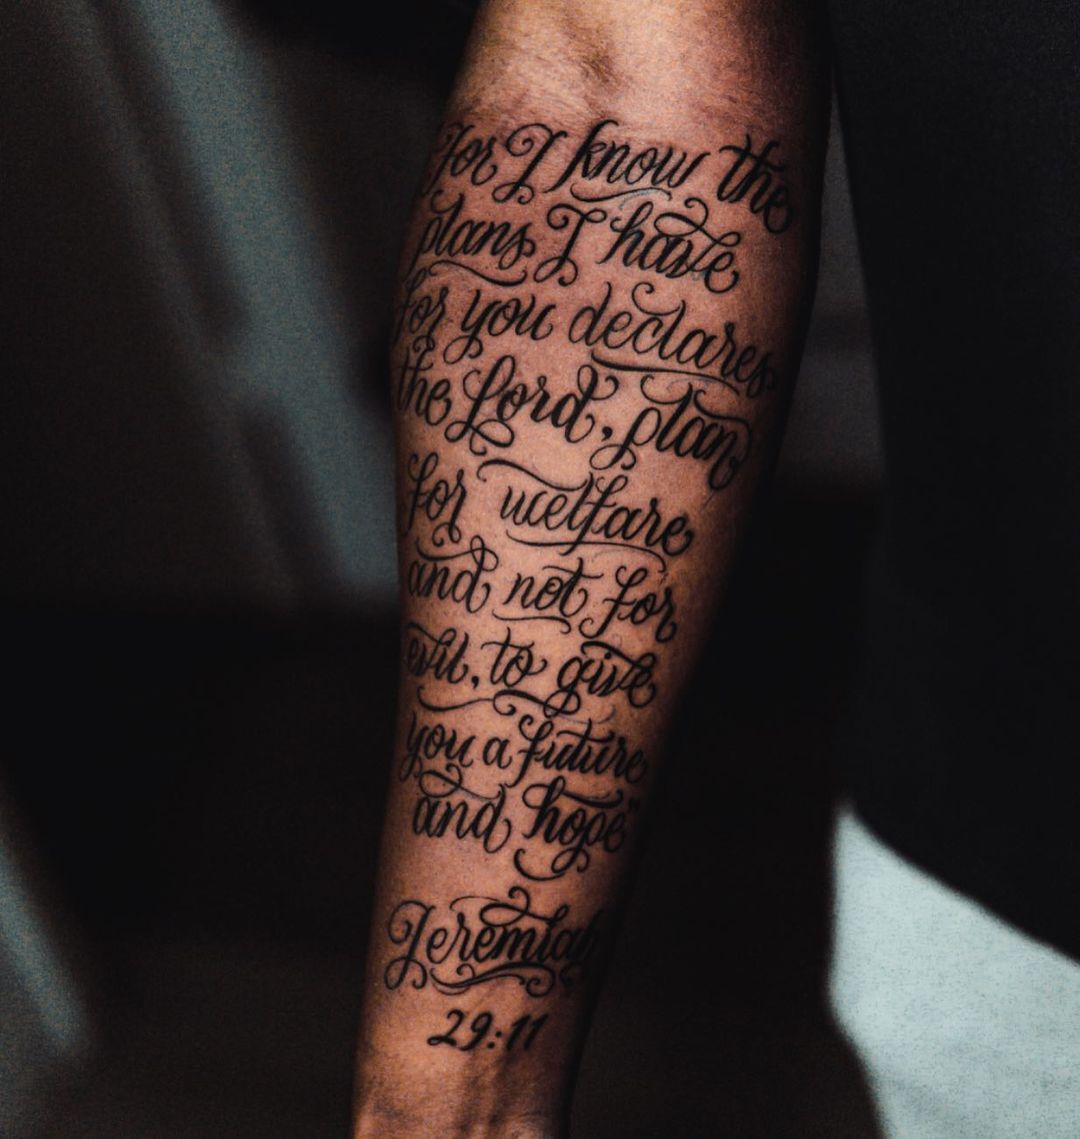 For I know the
plans I have
for you declares
the Lord, plan
for welfare
and not for
evil, to give
you a future
and hope"
Jeremiah
29:11